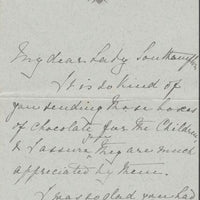 My dear Lady Southampton
It is so kind of
you sending those boxes
of Chocolate for the Children
& I assure they are much
appreciated by them.
I was so glad you had